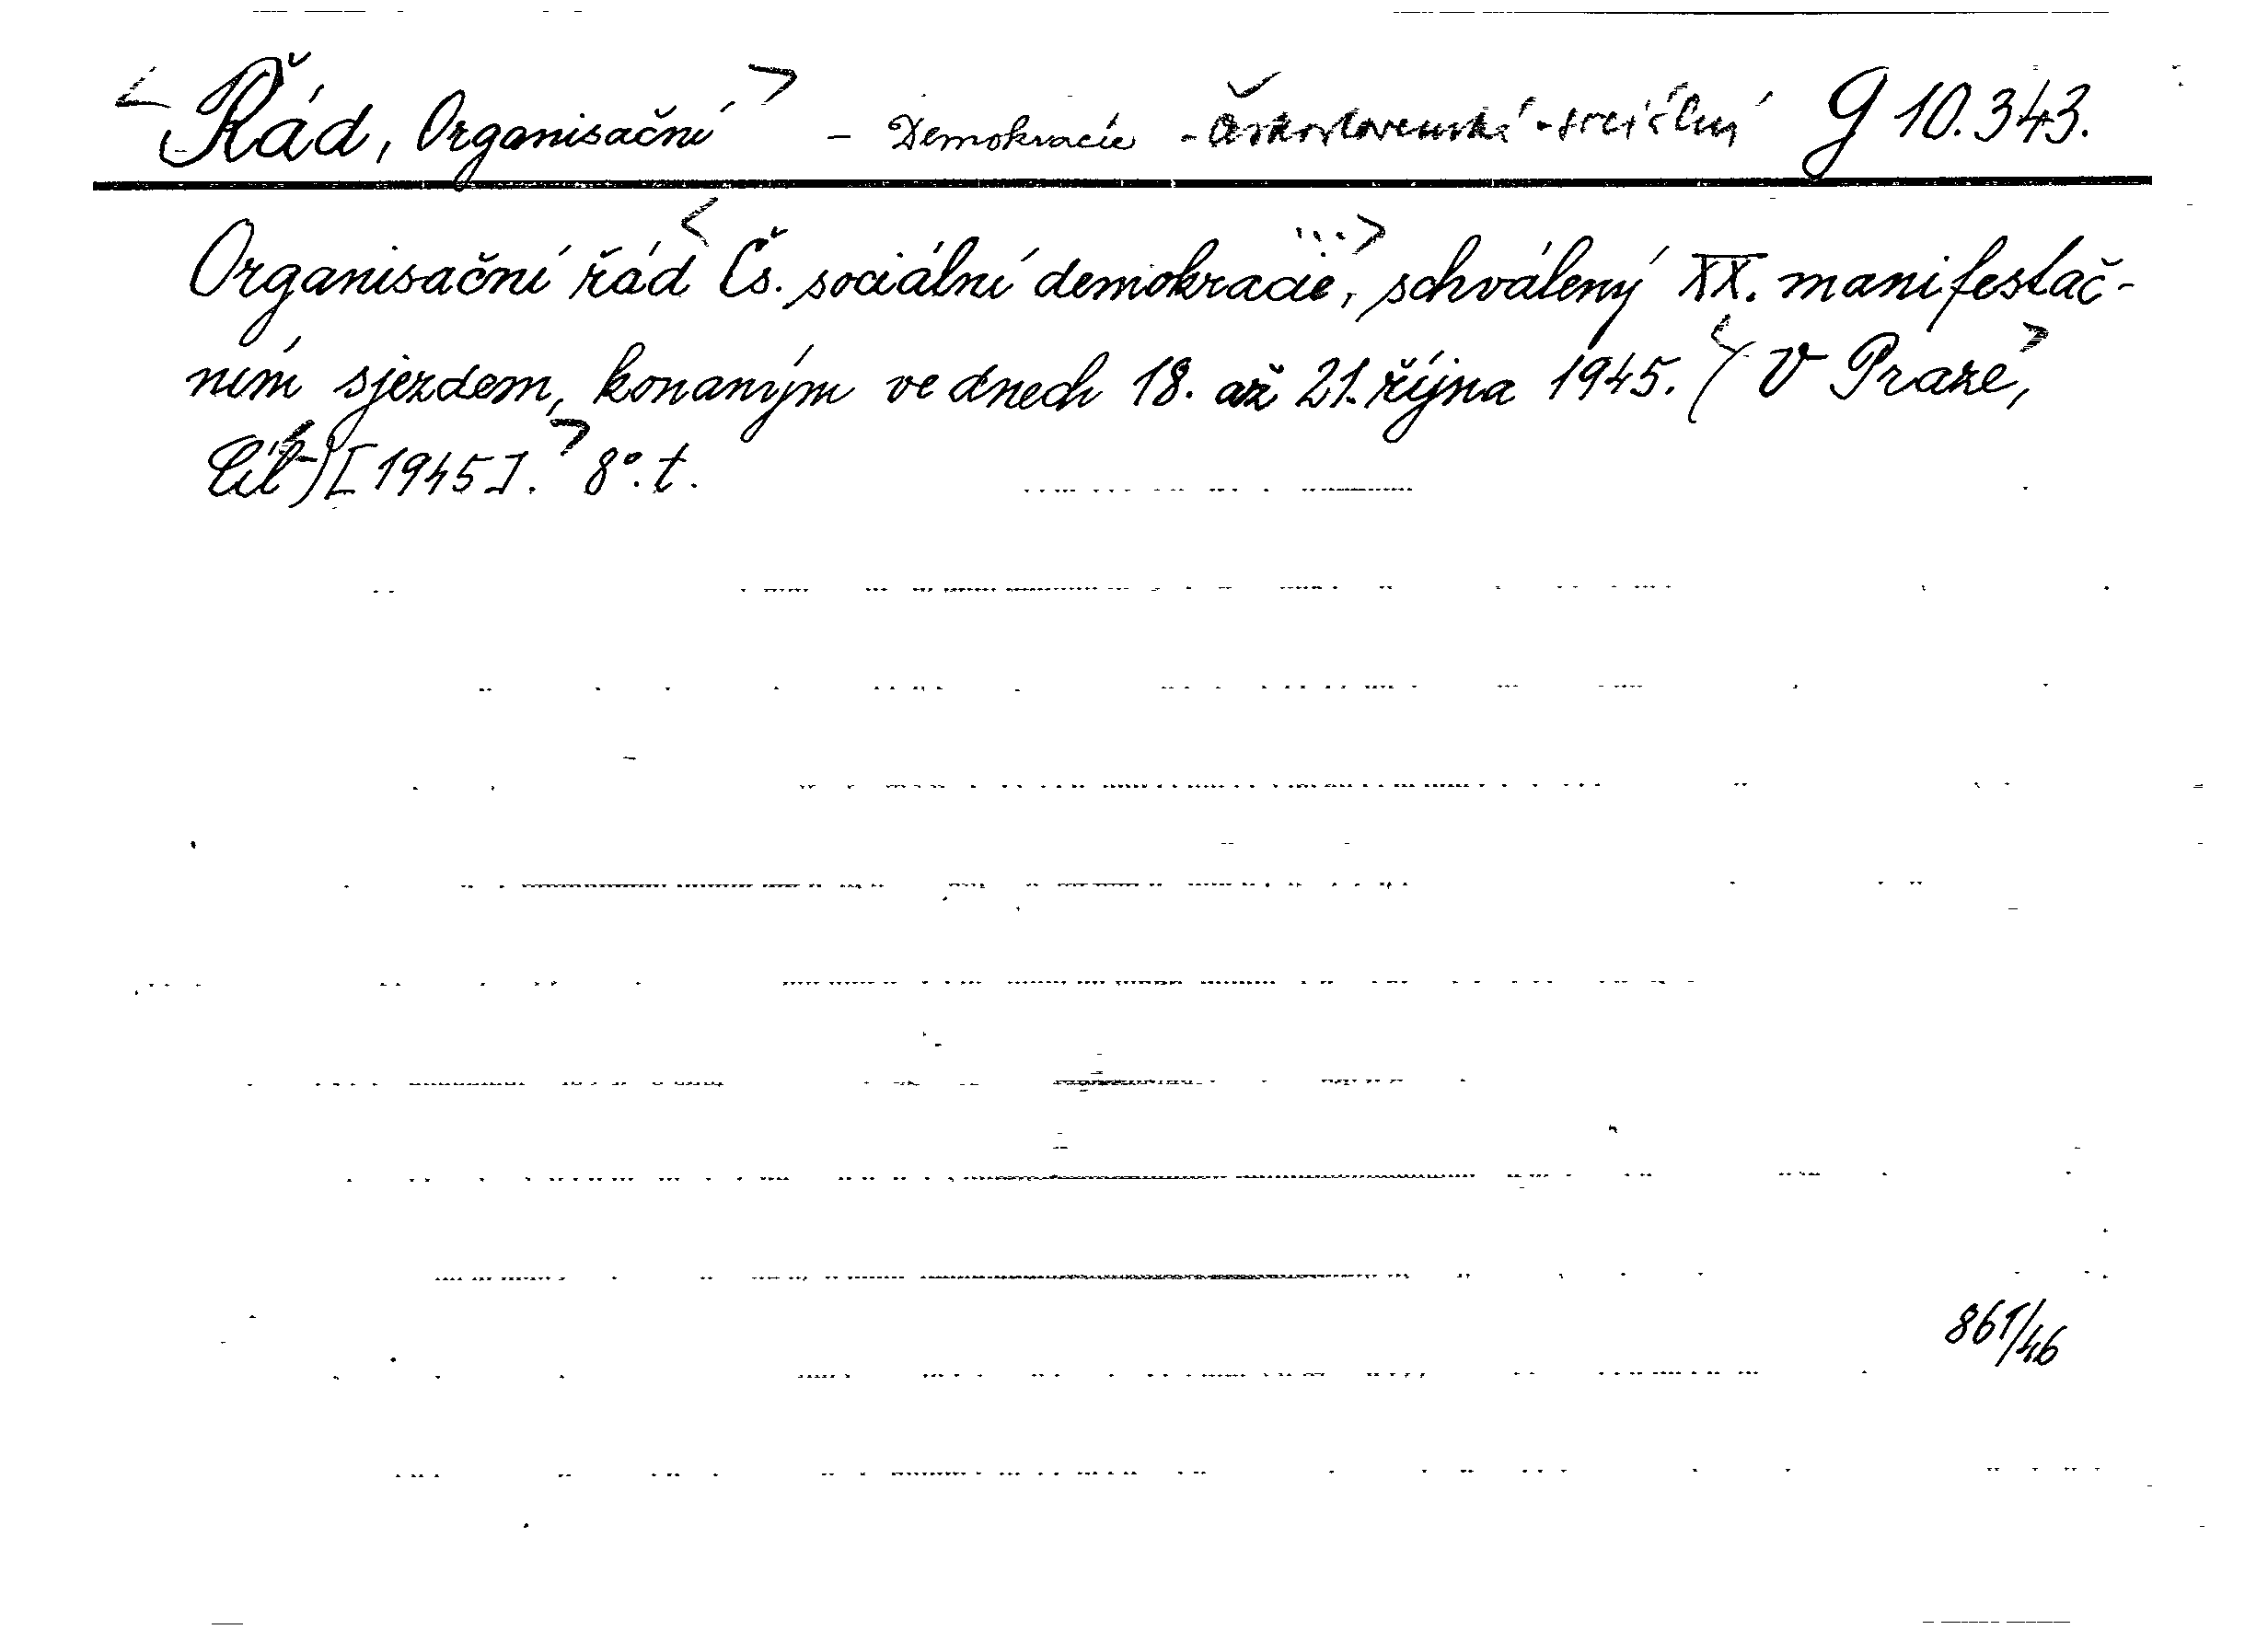 <Řád, Organisační> - Demokracie - Československá - sociální G 10.343.
Organisační řád <Čs. sociální demokracie, ...> schválený XX. manifestač-
ním sjezdem, konaným ve dnech 18. až 21. října 1945. <(V Praze,>
<Cíl) [1945].> 8°. t.
861/46